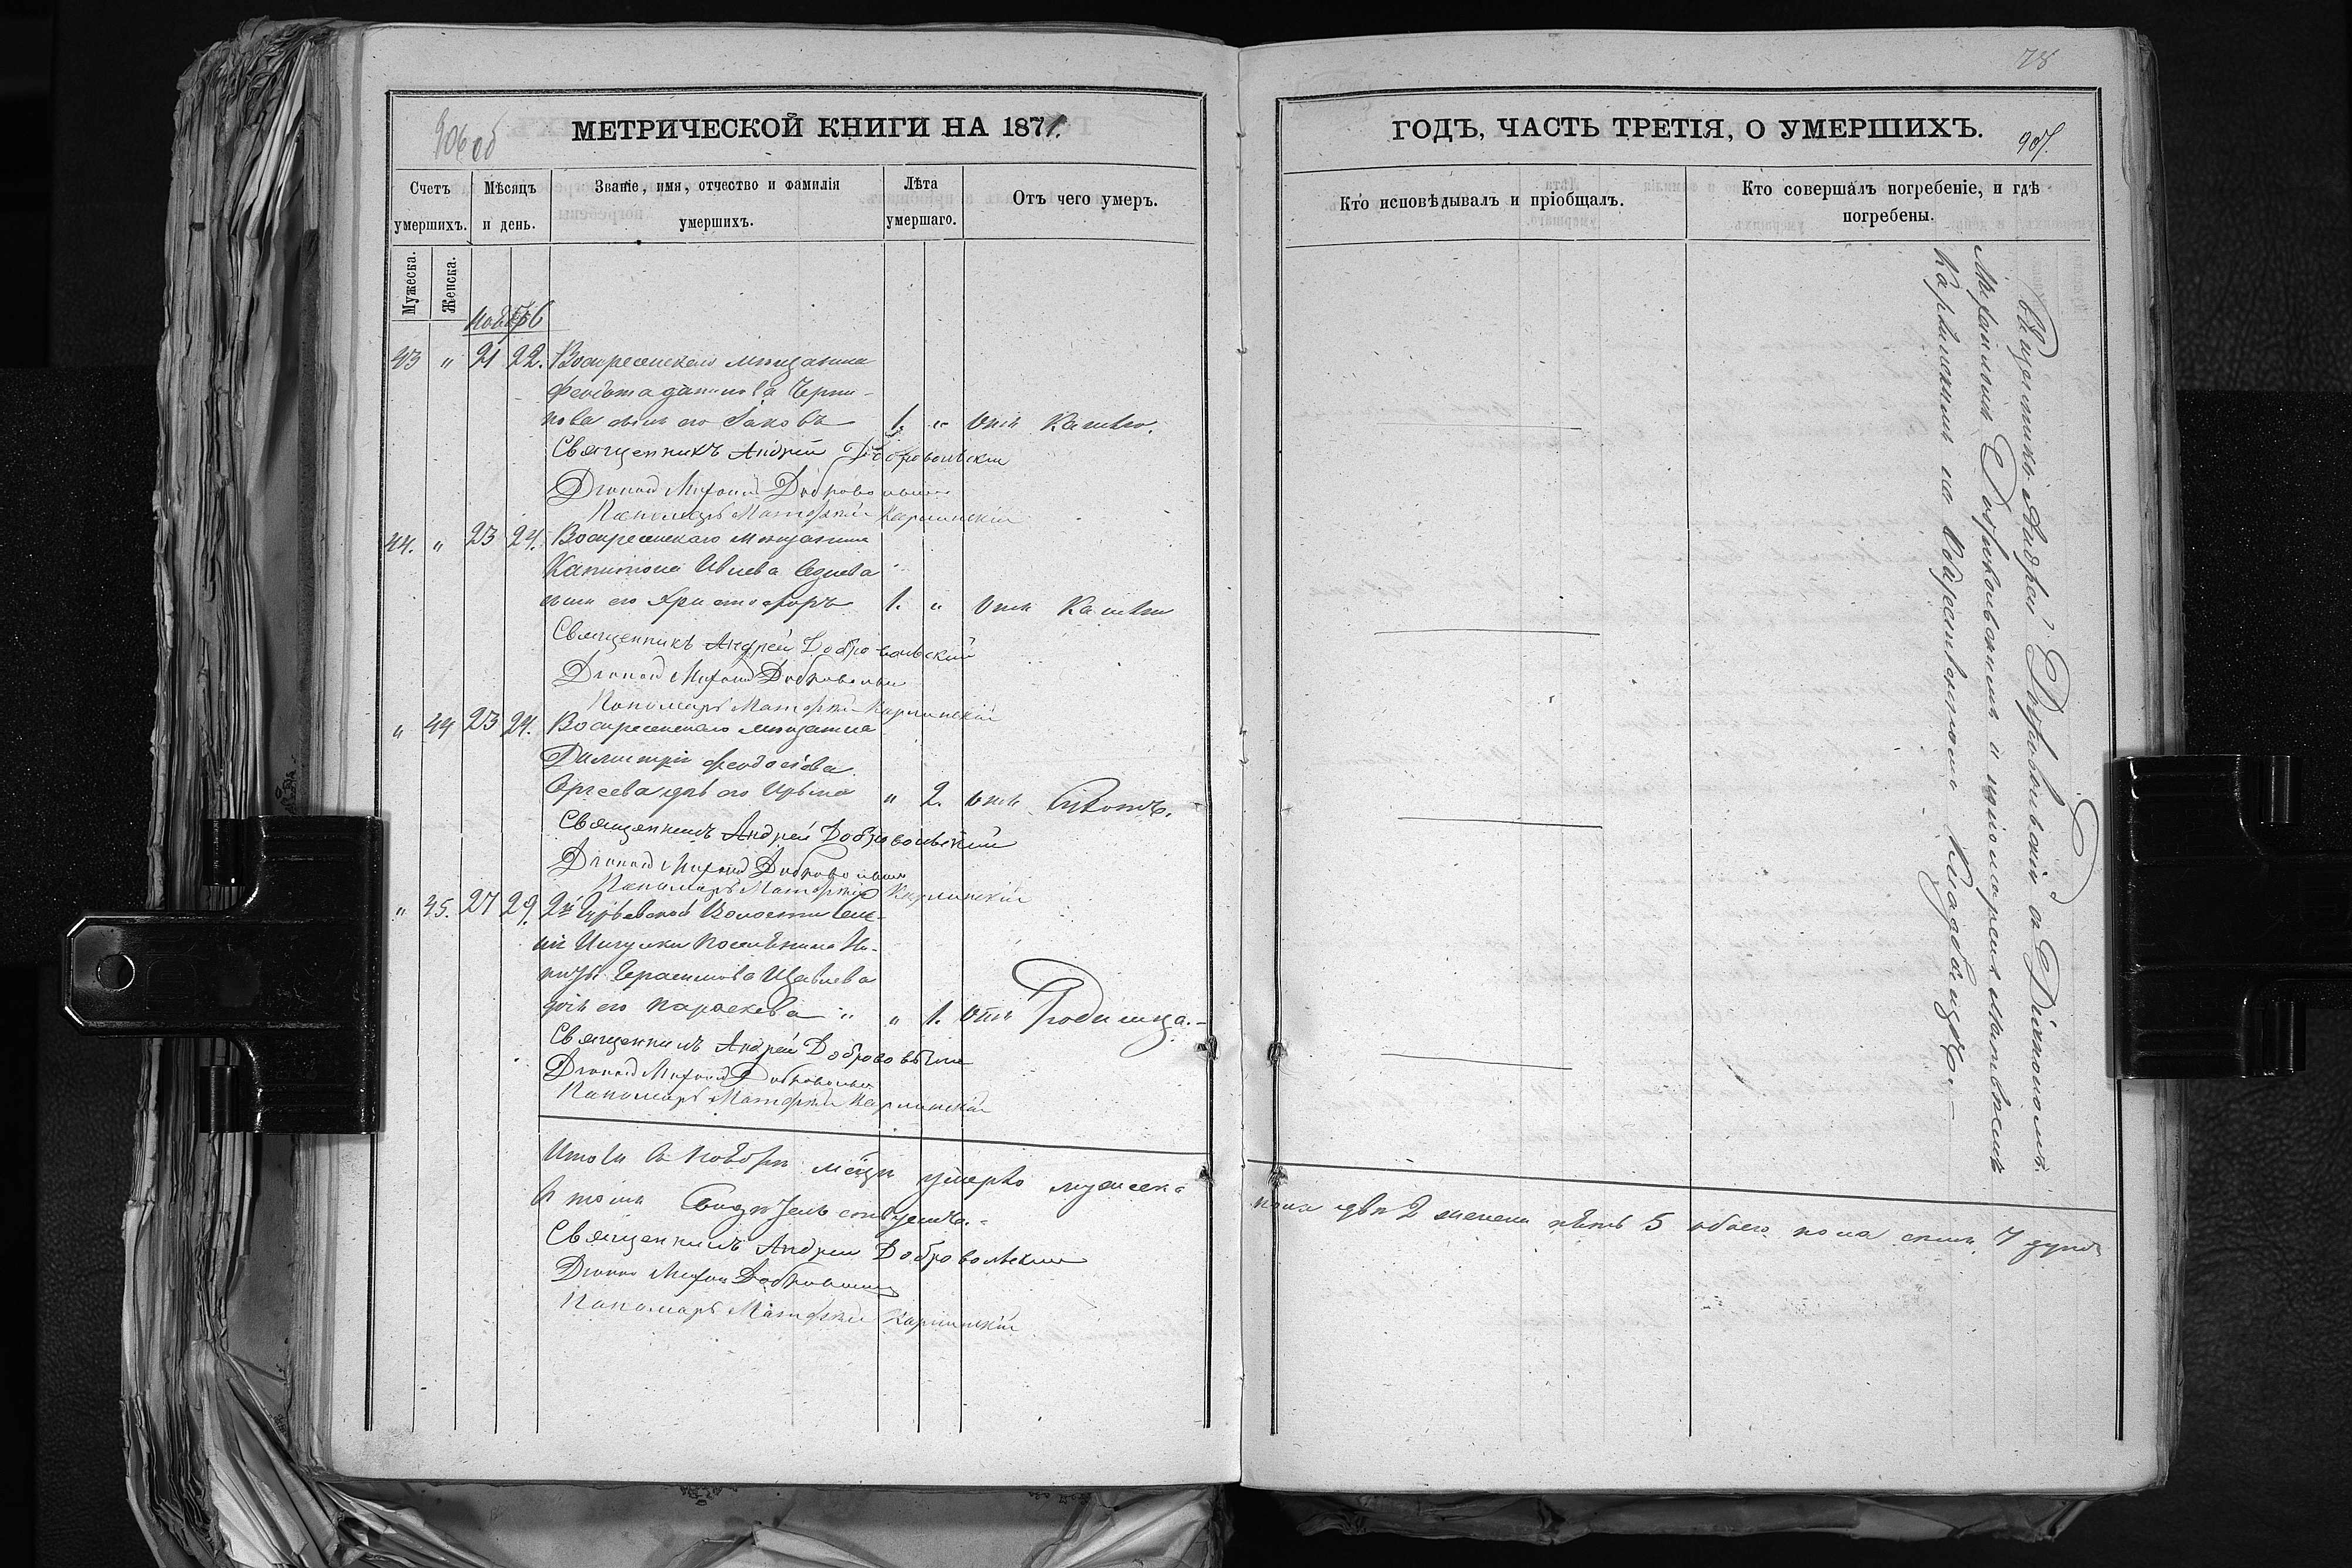 МЕТРИЧЕСКОЙ КНИГИ НА 1871
Счетъ умершихъ.
Мѣсяцъ и день.
Званіе, имя, отчество и фамилія умершихъ.
Лѣта умершаго.
Отъ чего умеръ.
Мужеска.
Женска.
Ноябрь
43 „ 21 22. Воскресенскаго мѣщанина
Феодота Данилова Черни-
кова сынъ его Іаковъ 1. „ Отъ Кашлю.
Священникъ Андрей Добровольскій
Діаконъ Михаилъ Добровольскій
Пономарь Матѳей Карпинскій
44. „ 23 24. Воскресенскаго мѣщанина
Капитона
сынъ его Христофоръ 1. „ Отъ Кашлю
Священникъ Андрей Добровольскій
Діаконъ Михаилъ Добровольскій
Пономарь Матѳей Карпинскій
„ 44 23 24. Воскресенскаго мѣщанина
Димитрія Феодосіева
Сергеева дчь его Ирина „ 2. отъ
Священникъ Андрей Добровольскій
Діаконъ Михаилъ Добровольскій
Пономарь Матѳей Карпинскій
„ 45. 27 29. 2й Гурьевской Волости
поселянина Ни-
Герасимова Щавлева
дочь его Параскева „ „ 1. Отъ Родимца.
Священникъ Андрей Добровольскій
Діаконъ Михаилъ Добровольскій
Пономарь Матѳей Карпинскій
Итого въ Ноябрѣ м-цѣ умерло мужеска
В томъ Свидетельствуемъ.
Священникъ Андрей Добровольскій
Діаконъ Михаилъ Добровольскій
Пономарь Матѳей Карпинскій
78
ГОДЪ, ЧАСТЬ ТРЕТІЯ, О УМЕРШИХЪ.
907.
Кто исповѣдывалъ и пріобщалъ.
Кто совершалъ погребеніе, и гдѣ погребены.
Священникъ Андрей Добровольскій съ Діакономъ
Михаиломъ Добровольскимъ и пономаремъ Матвѣемъ
Карпинскимъ на Общественномъ Кладбищѣ.
пола два 2 женска пять 5 обоего пола семь 7 душъ